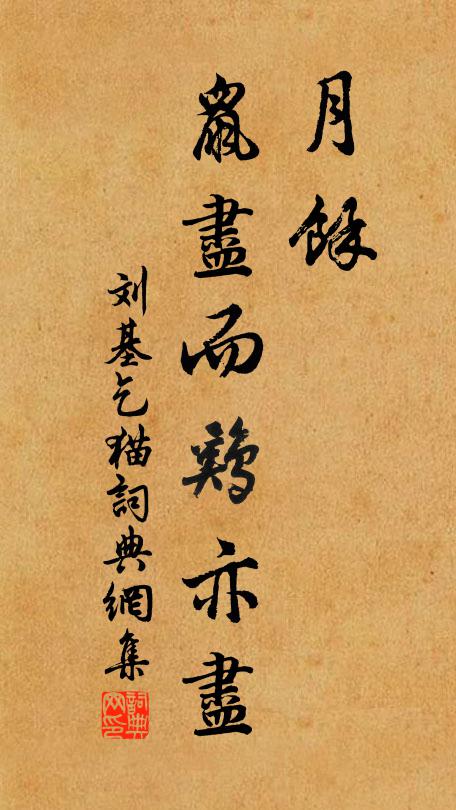 月餘
鼠盡而鷄亦盡
刘基乞猫詞典網集
詞典
网印